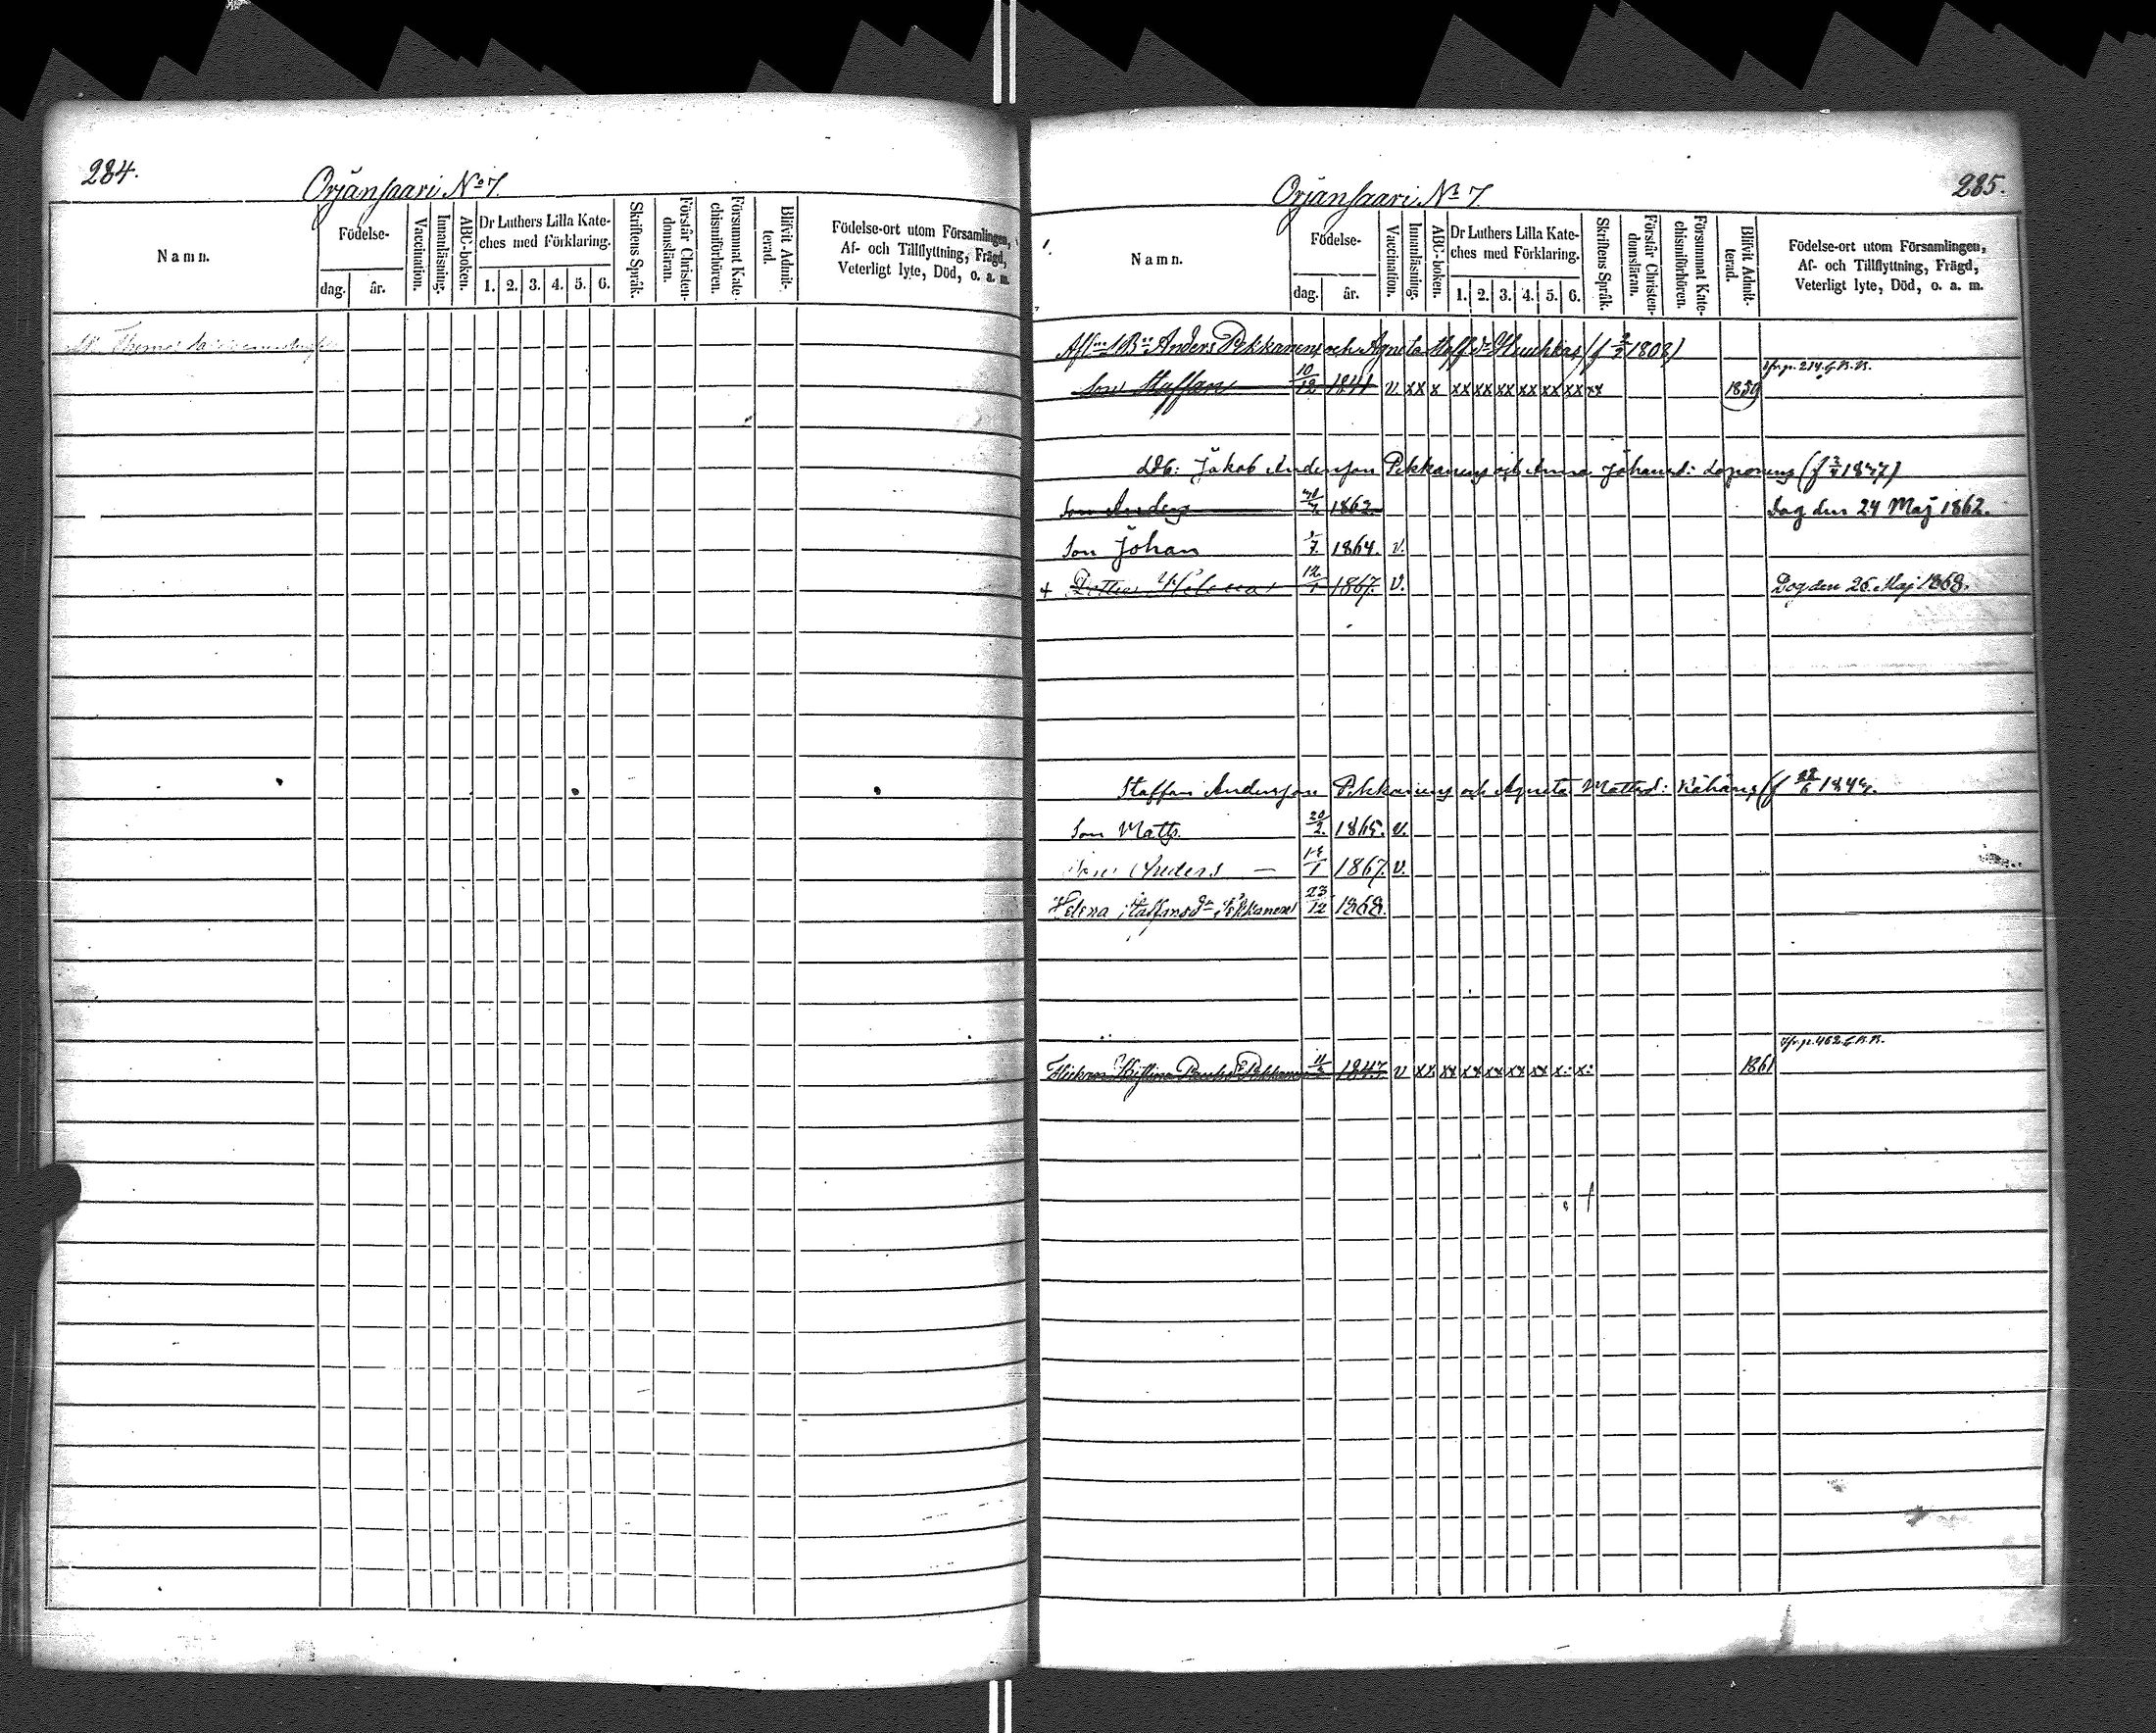 284.
Orjänsaari No 7.
Namn.
Födelse-
dag.
år.
Vaccination.
Innanläsning.
ABC-boken.
Dr Luthers Lilla Kate-
ches med Förklaring.
1. 2. 3. 4. 5. 6.
Skriftens Språk.
Förstår Christen-
domsläran.
Försummat Kate-
chismiförhören.
Blifvit Admit-
terad.
Födelse-ort utom Församlingen,
Af- och Tillflyttning, Frägd,
Veterligt lyte, Död, o. a. m.
285.
Orjänsaari No 7.
Namn.
Födelse-
dag.
år.
Vaccination.
Innanläsning.
ABC-boken.
Dr Luthers Lilla Kate-
ches med Förklaring.
1. 2. 3. 4. 5. 6.
Skriftens Språk.
Förstår Christen-
domsläran.
Försummat Kate-
chismiförhören.
Blifvit Admit-
terad.
Födelse-ort utom Församlingen,
Af- och Tillflyttning, Frägd,
Veterligt lyte, Död, o. a. m.
Anders Pekkanens och Agneta Staffdr 1808)
Son Staffan 10/12 1841 v. xx x xx xx xx xx xx xx xx 1859
Jakob Andersson Pekkanens och Anna Johansd: Loponens
Son Anders 1862. Dog den 24 Maj 1862.
Son Johan 1864. v.
+ Dotter Helena 12/1 1867. v. Dog den 26 Maj 1868.
Staffan Andersson Pekkanens och Agneta Mattsd:
Son Matts. 20/2. 1865. v.
Son Anders — 1867. v.
Helena Staffansdr Pekkanen 23/12 1868.
Pekkanen 1847. v xx xx xx xx xx xx x: x: 1861